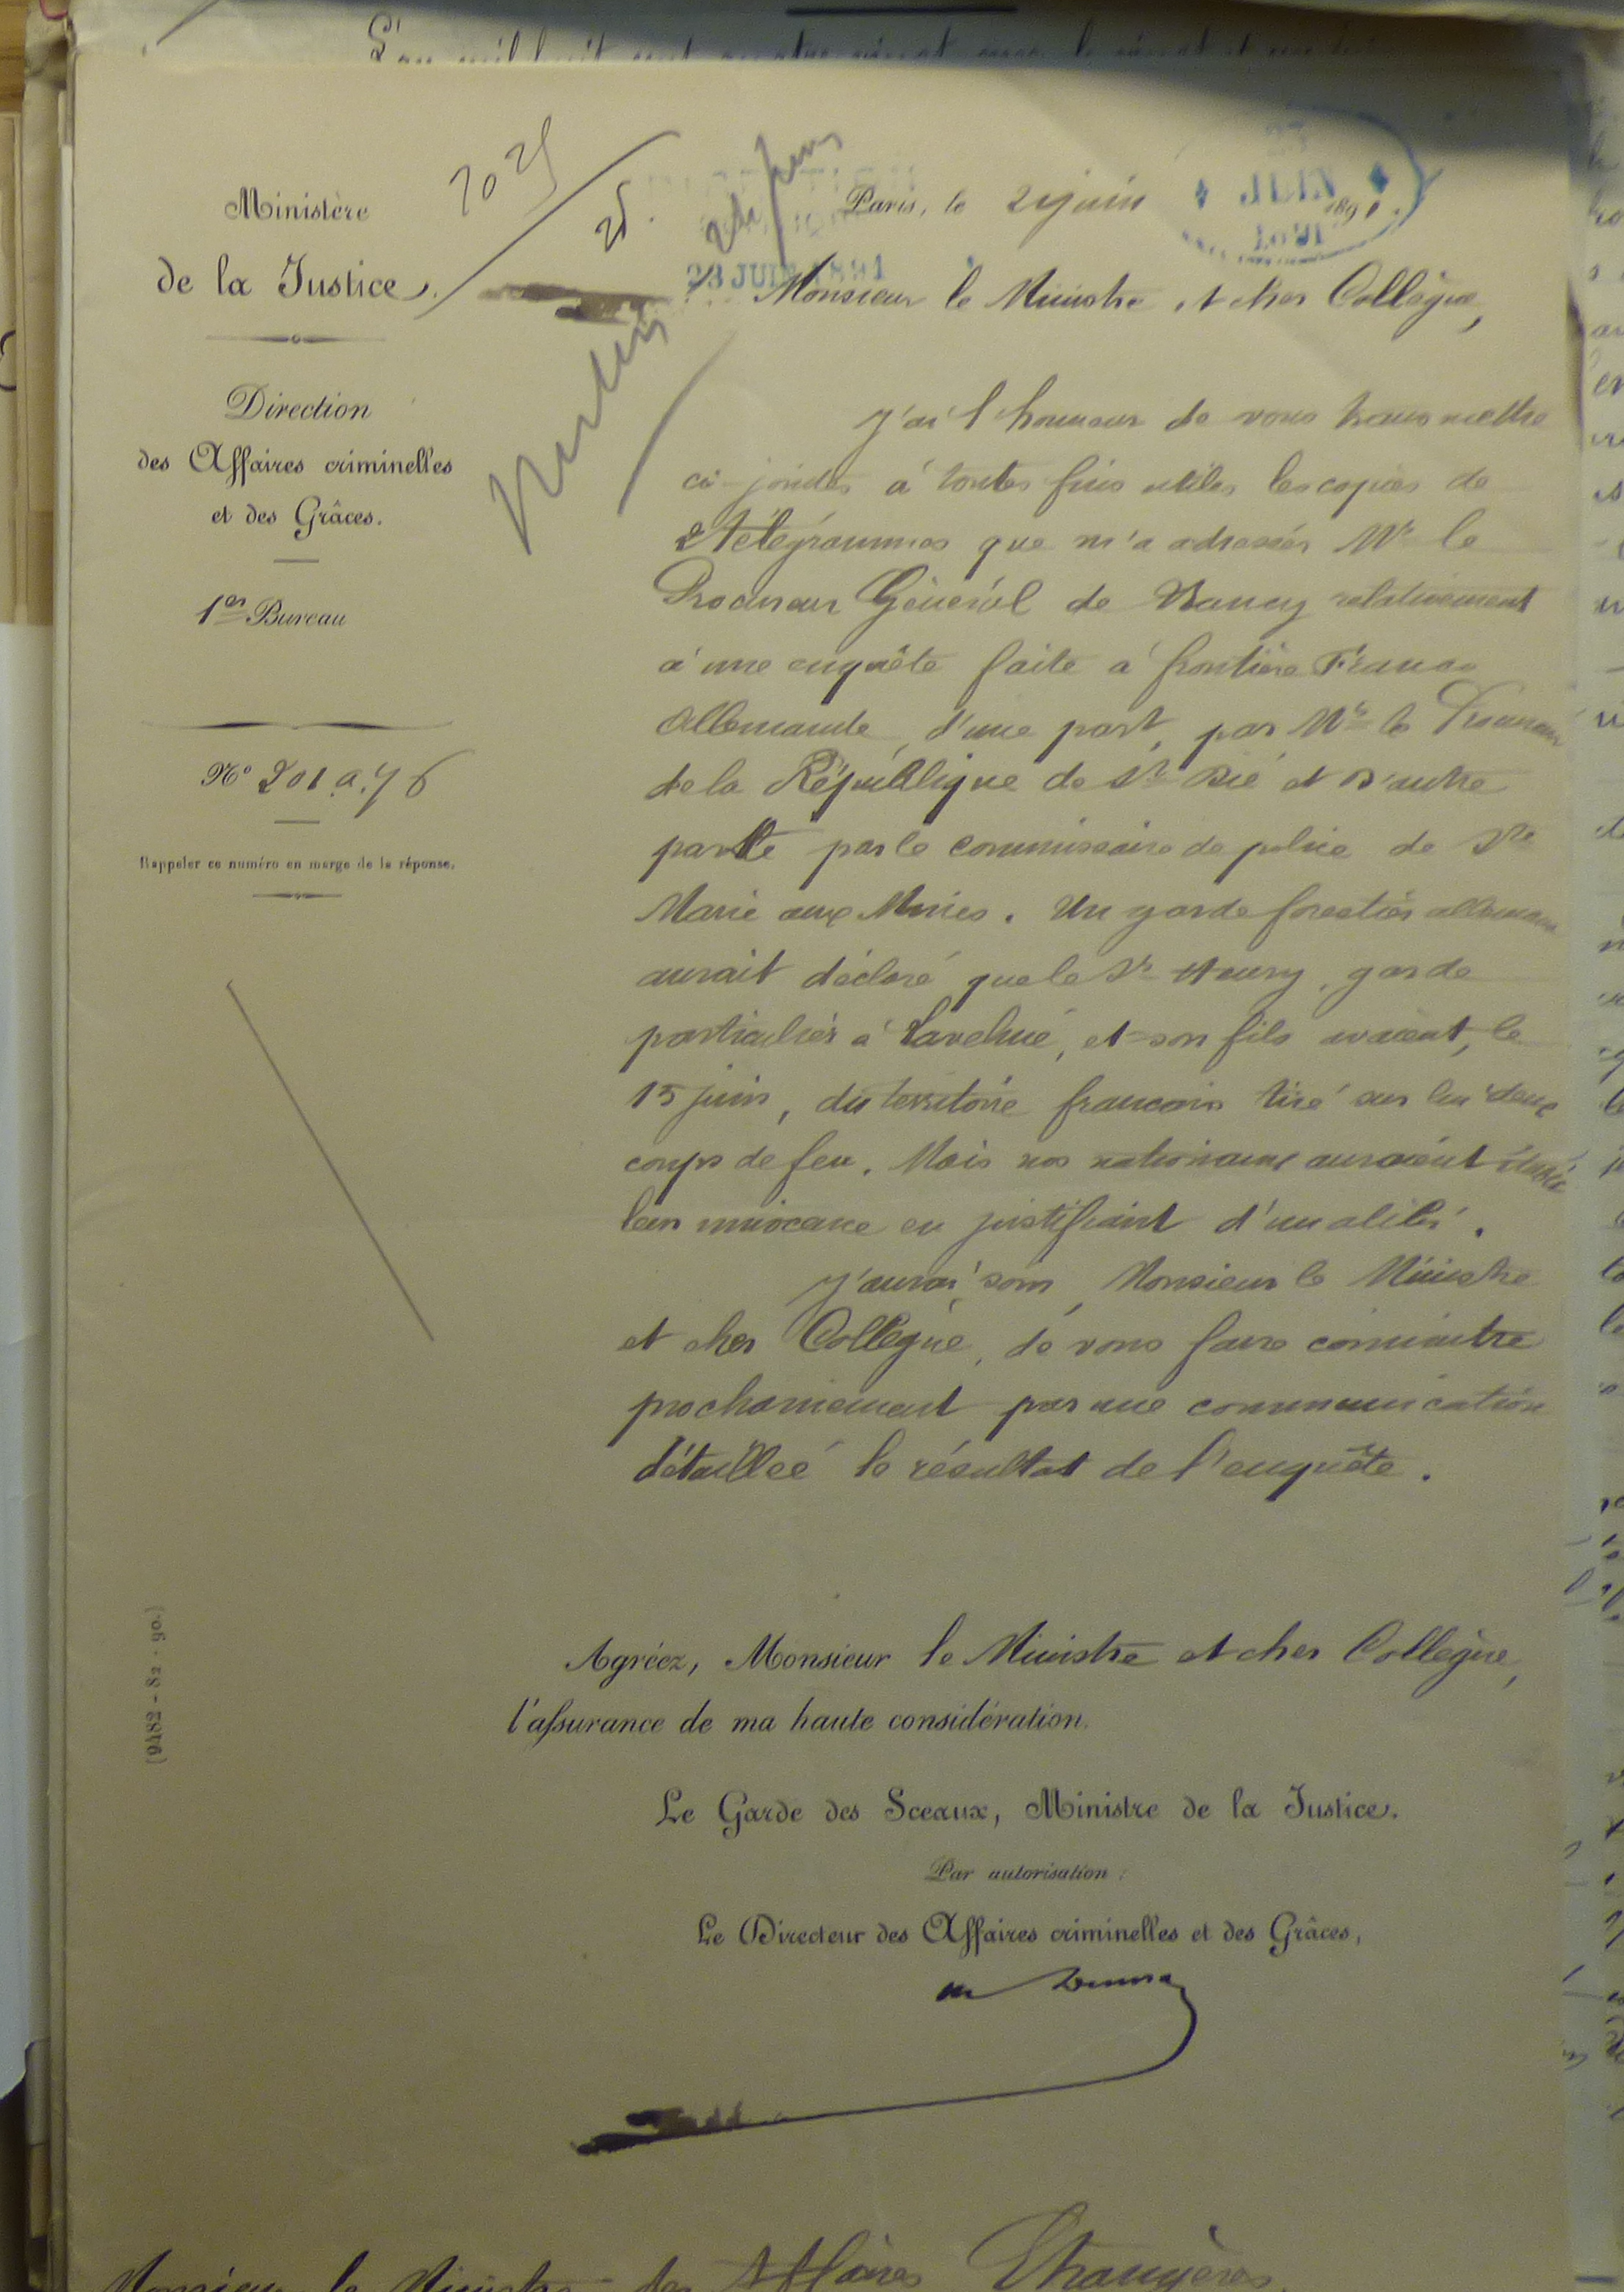 Ministère
de la Justice.
Direction
des Affaires criminelles
et des Grâces.
1er Bureau
N° 201.a.76
Rappeler ce numéro en marge de la réponse.
(9482-82-90.)
23 JUIN 1891
JUIN
Paris, le juin 1891.
Monsieur le Ministre et cher Collègue,
J'ai l'honneur de vous transmettre
ci-jointes à toutes fins utiles les copies de
2 télégrammes que m'a adressés Mr le
Procureur Général de Nancy relativement
à une enquête faite à frontière Franco
Allemande, d'une part, par Mr le Procureur
de la République de St Dié et d'autre
part par le commissaire de police de Ste
Marie aux Mines. Un garde forestier allemand
aurait déclaré que le Sr Henry, garde
particulier à et son fils avaient, le
15 juin, du territoire français tiré sur lui deux
coups de feu. Mais nos nationaux auraient établi
leur innocence en justifiant d'un alibi.
J'aurai soin, Monsieur le Ministre
et cher Collègue, de vous faire connaitre
prochainement par une communication
détaillée le résultat de l'enquête.
Agréez, Monsieur le Ministre et cher Collègue,
l'assurance de ma haute considération.
Le Garde des Sceaux, Ministre de la Justice.
Par autorisation :
Le Directeur des Affaires criminelles et des Grâces,
Monsieur le Ministre des Affaires Etrangères